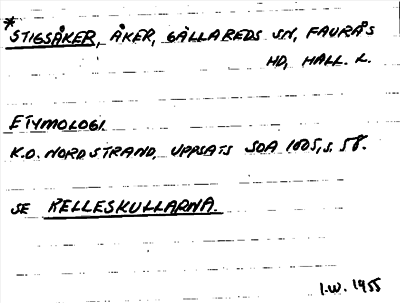 *
STIGSÅKER, ÅKER, GÄLLAREDS SN, FAURÅS
HD, HALL. L.
ETYMOLOGI.
K.O. NORDSTRAND, UPPSATS SOA 1005, S. 58.
SE KELLESKULLARNA.
I.W. 1955